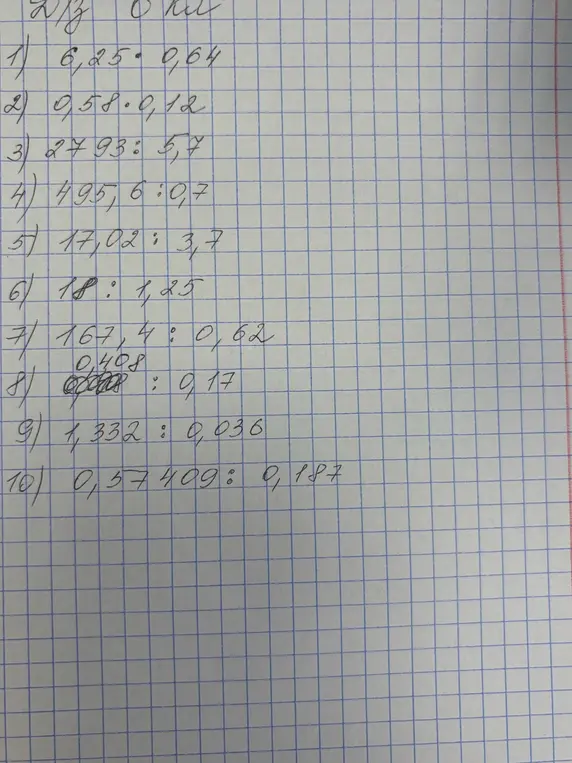 Д/з 6 кл
1) 6,25 · 0,64
2) 0,58 · 0,12
3) 2793 : 5,7
4) 495,6 : 0,7
5) 17,02 : 3,7
6) 18 : 1,25
7) 167,4 : 0,62
8) 0,408 : 0,17
9) 1,332 : 0,036
10) 0,57409 : 0,187